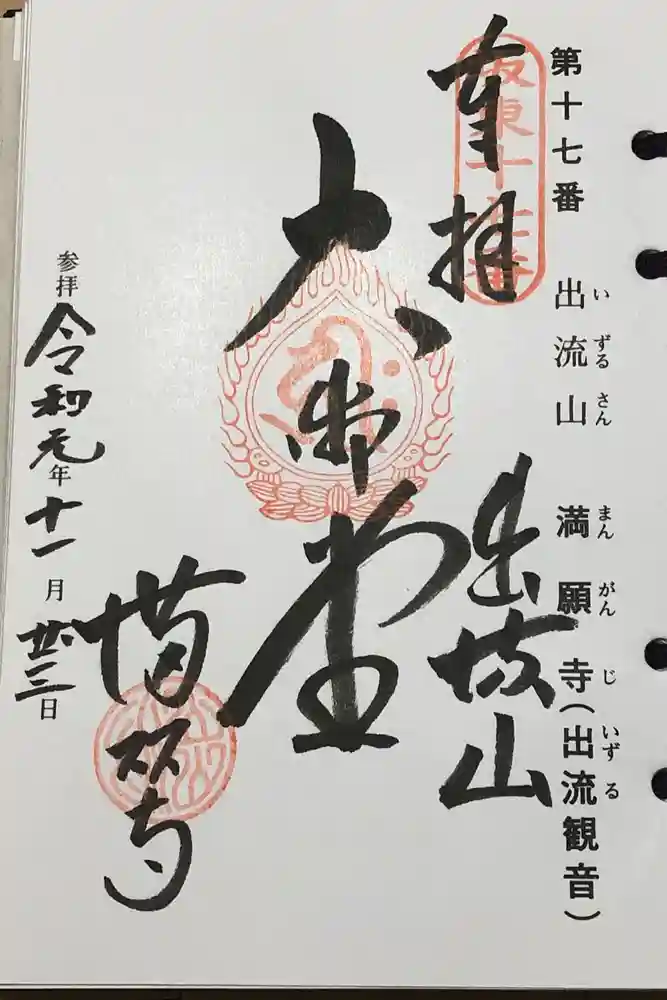 第十七番 出流山 満願寺(出流観音)
いずるさん まんがんじ いずる
奉拝
坂東十七番
出流山
大御堂
満願寺
参拝 令和元年十一月廿三日